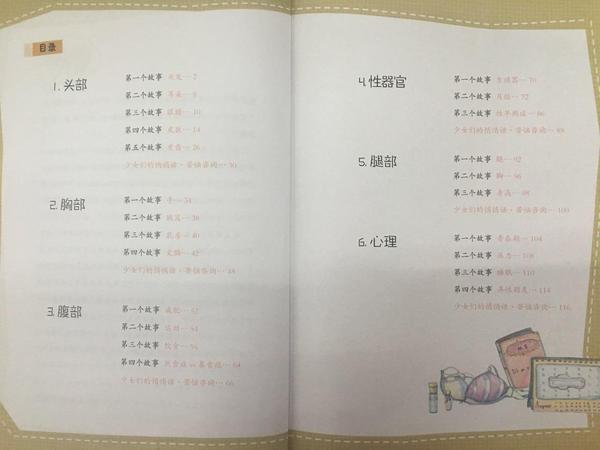 目录
1. 头部
第一个故事 头发… 2
第二个故事 耳朵… 8
第三个故事 眼睛… 10
第四个故事 皮肤… 14
第五个故事 牙齿… 26
少女们的悄悄话·苦恼咨询… 30
2. 胸部
第一个故事 手… 34
第二个故事 腋窝… 38
第三个故事 乳房… 40
第四个故事 文胸… 42
少女们的悄悄话·苦恼咨询… 48
3. 腹部
第一个故事 减肥… 52
第二个故事 运动… 54
第三个故事 饮食… 56
第四个故事 厌食症 vs 暴食症… 64
少女们的悄悄话·苦恼咨询… 66
4. 性器官
第一个故事 生殖器… 70
第二个故事 月经… 72
第三个故事
少女们的悄悄话·苦恼咨询… 88
5. 腿部
第一个故事 腿… 92
第二个故事 脚… 96
第三个故事 身高… 98
少女们的悄悄话·苦恼咨询… 100
6. 心理
第一个故事 青春期… 104
第二个故事 压力… 108
第三个故事 睡眠… 110
第四个故事 异性朋友… 114
少女们的悄悄话·苦恼咨询… 116